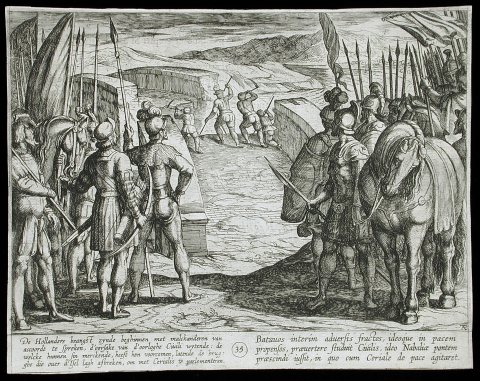 De Hollanders beangst zynde beginnen met malckanderen van
accoort te spreken, d'oorsake van d'oorloghe Civili wytende: de
welcke hunnen sin merckende, heeft hen voorcomen, latende de brug-
ghe die over d'Ysel lagh afbreken, om met Cerialis te parlementeren.
35
Batavos interim adversis fractos, ideoque in pacem
propensos, prævertere studens Civilis, ideo Nabaliæ pontem
præscindi iussit, in quo cum Cereale de pace agitaret.